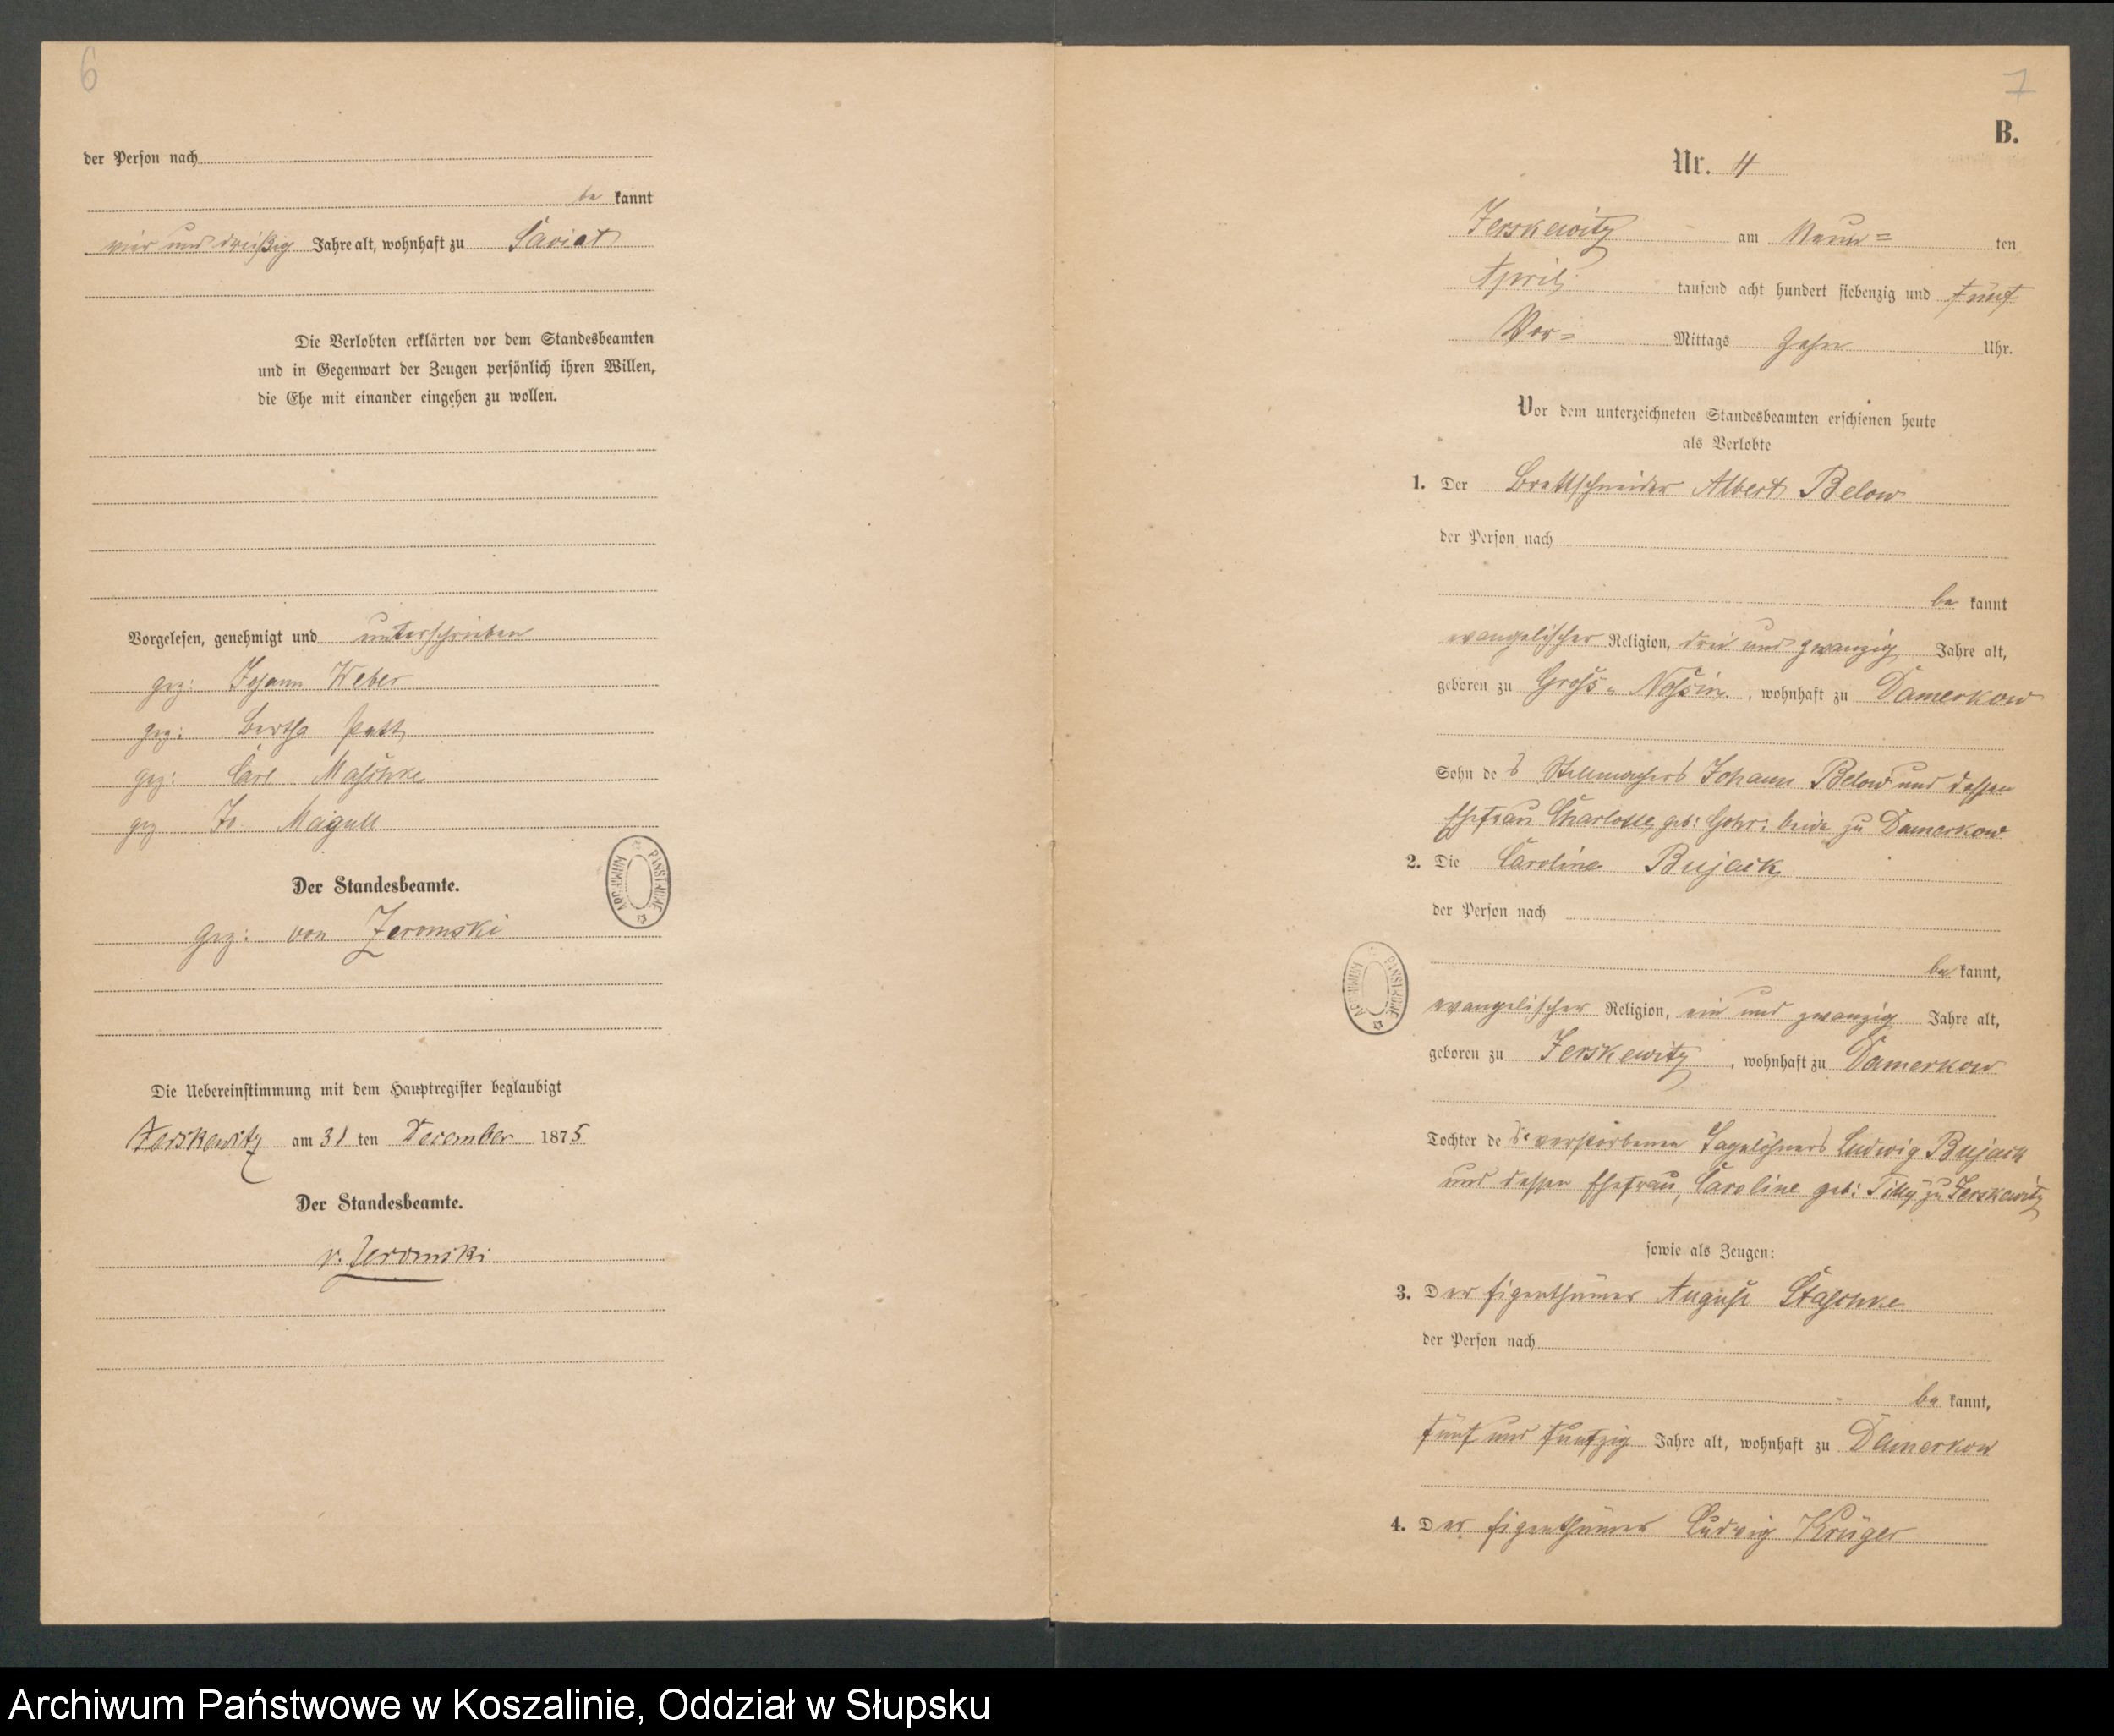 6
der Person nach
be kannt
vier und dreißig Jahre alt, wohnhaft zu Saviat
Die Verlobten erklärten vor dem Standesbeamten
und in Gegenwart der Zeugen persönlich ihren Willen,
die Ehe mit einander eingehen zu wollen.
Vorgelesen, genehmigt und unterschrieben
gez: Johann Weber
gez: Bertha Patt
gez: Carl Maschke
gez Jo. Magull
Der Standesbeamte.
gez: von Jeromski
ARCHIWUM PAŃSTWOWE
Die Uebereinstimmung mit dem Hauptregister beglaubigt
Jerskewitz am 31 ten December 1875
Der Standesbeamte.
v. Jeromski
7
B.
Nr. 4
Jerskewitz am Neun= ten
April tausend acht hundert siebenzig und fünf
Vor= Mittags Zehn Uhr.
Vor dem unterzeichneten Standesbeamten erschienen heute
als Verlobte
1. Der Brettschneider Albert Below
der Person nach
be kannt
evangelischer Religion, drei und zwanzig Jahre alt,
geboren zu Groß-Nossin, wohnhaft zu Damerkow
Sohn de s Stellmachers Johann Below und dessen
Ehefrau Charlotte, geb: Gohr: beide zu Damerkow
2. Die Caroline Bujack
der Person nach
be kannt,
evangelischer Religion, ein und zwanzig Jahre alt,
geboren zu Jerskewitz, wohnhaft zu Damerkow
ARCHIWUM PAŃSTWOWE
Tochter de s verstorbenen Tagelöhners Ludwig Bujack
und dessen Ehefrau, Caroline geb: Tilly zu Jerskewitz
sowie als Zeugen:
3. Der Eigenthümer August Staschke
der Person nach
be kannt,
fünf und funfzig Jahre alt, wohnhaft zu Damerkow
4. Der Eigenthümer Ludwig Krüger
Archiwum Państwowe w Koszalinie, Oddział w Słupsku